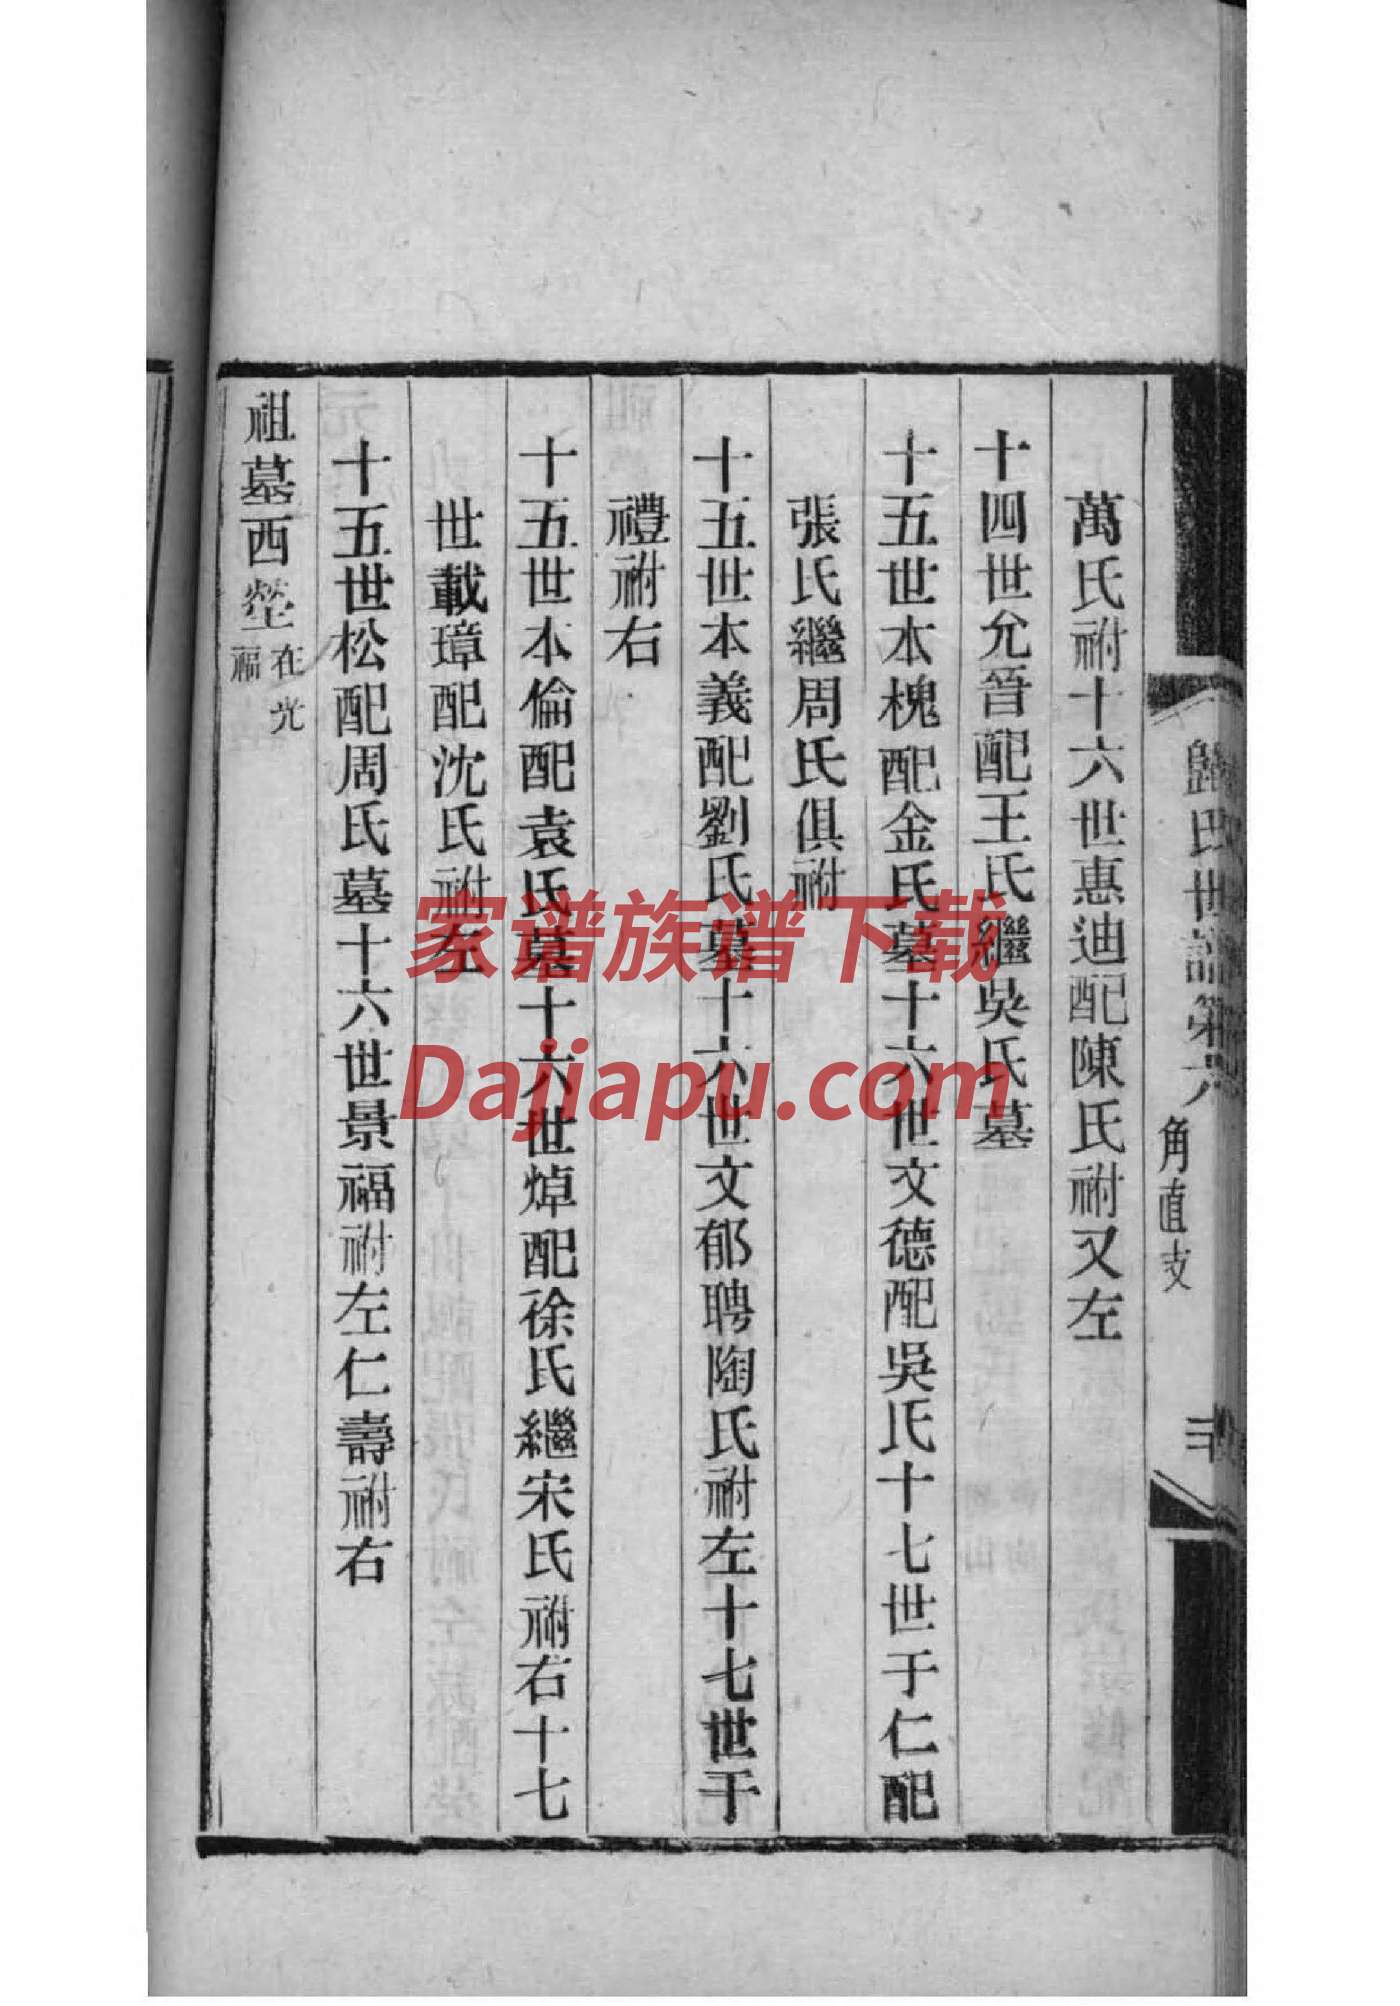 歸氏世譜第六
角直支
萬氏祔十六世惠迪配陳氏祔又左
十四世允晉配王氏繼吳氏墓
十五世本槐配金氏墓十六世文德配吳氏十七世于仁配
張氏繼周氏俱祔
十五世本義配劉氏墓十六世文郁聘陶氏祔左十七世于
禮祔右
十五世本倫配袁氏墓十六世焯配徐氏繼宋氏祔右十七
世載璋配沈氏祔左
十五世松配周氏墓十六世景福祔左仁壽祔右
祖墓西塋在光
福
家谱族谱下载
Dajiapu.com